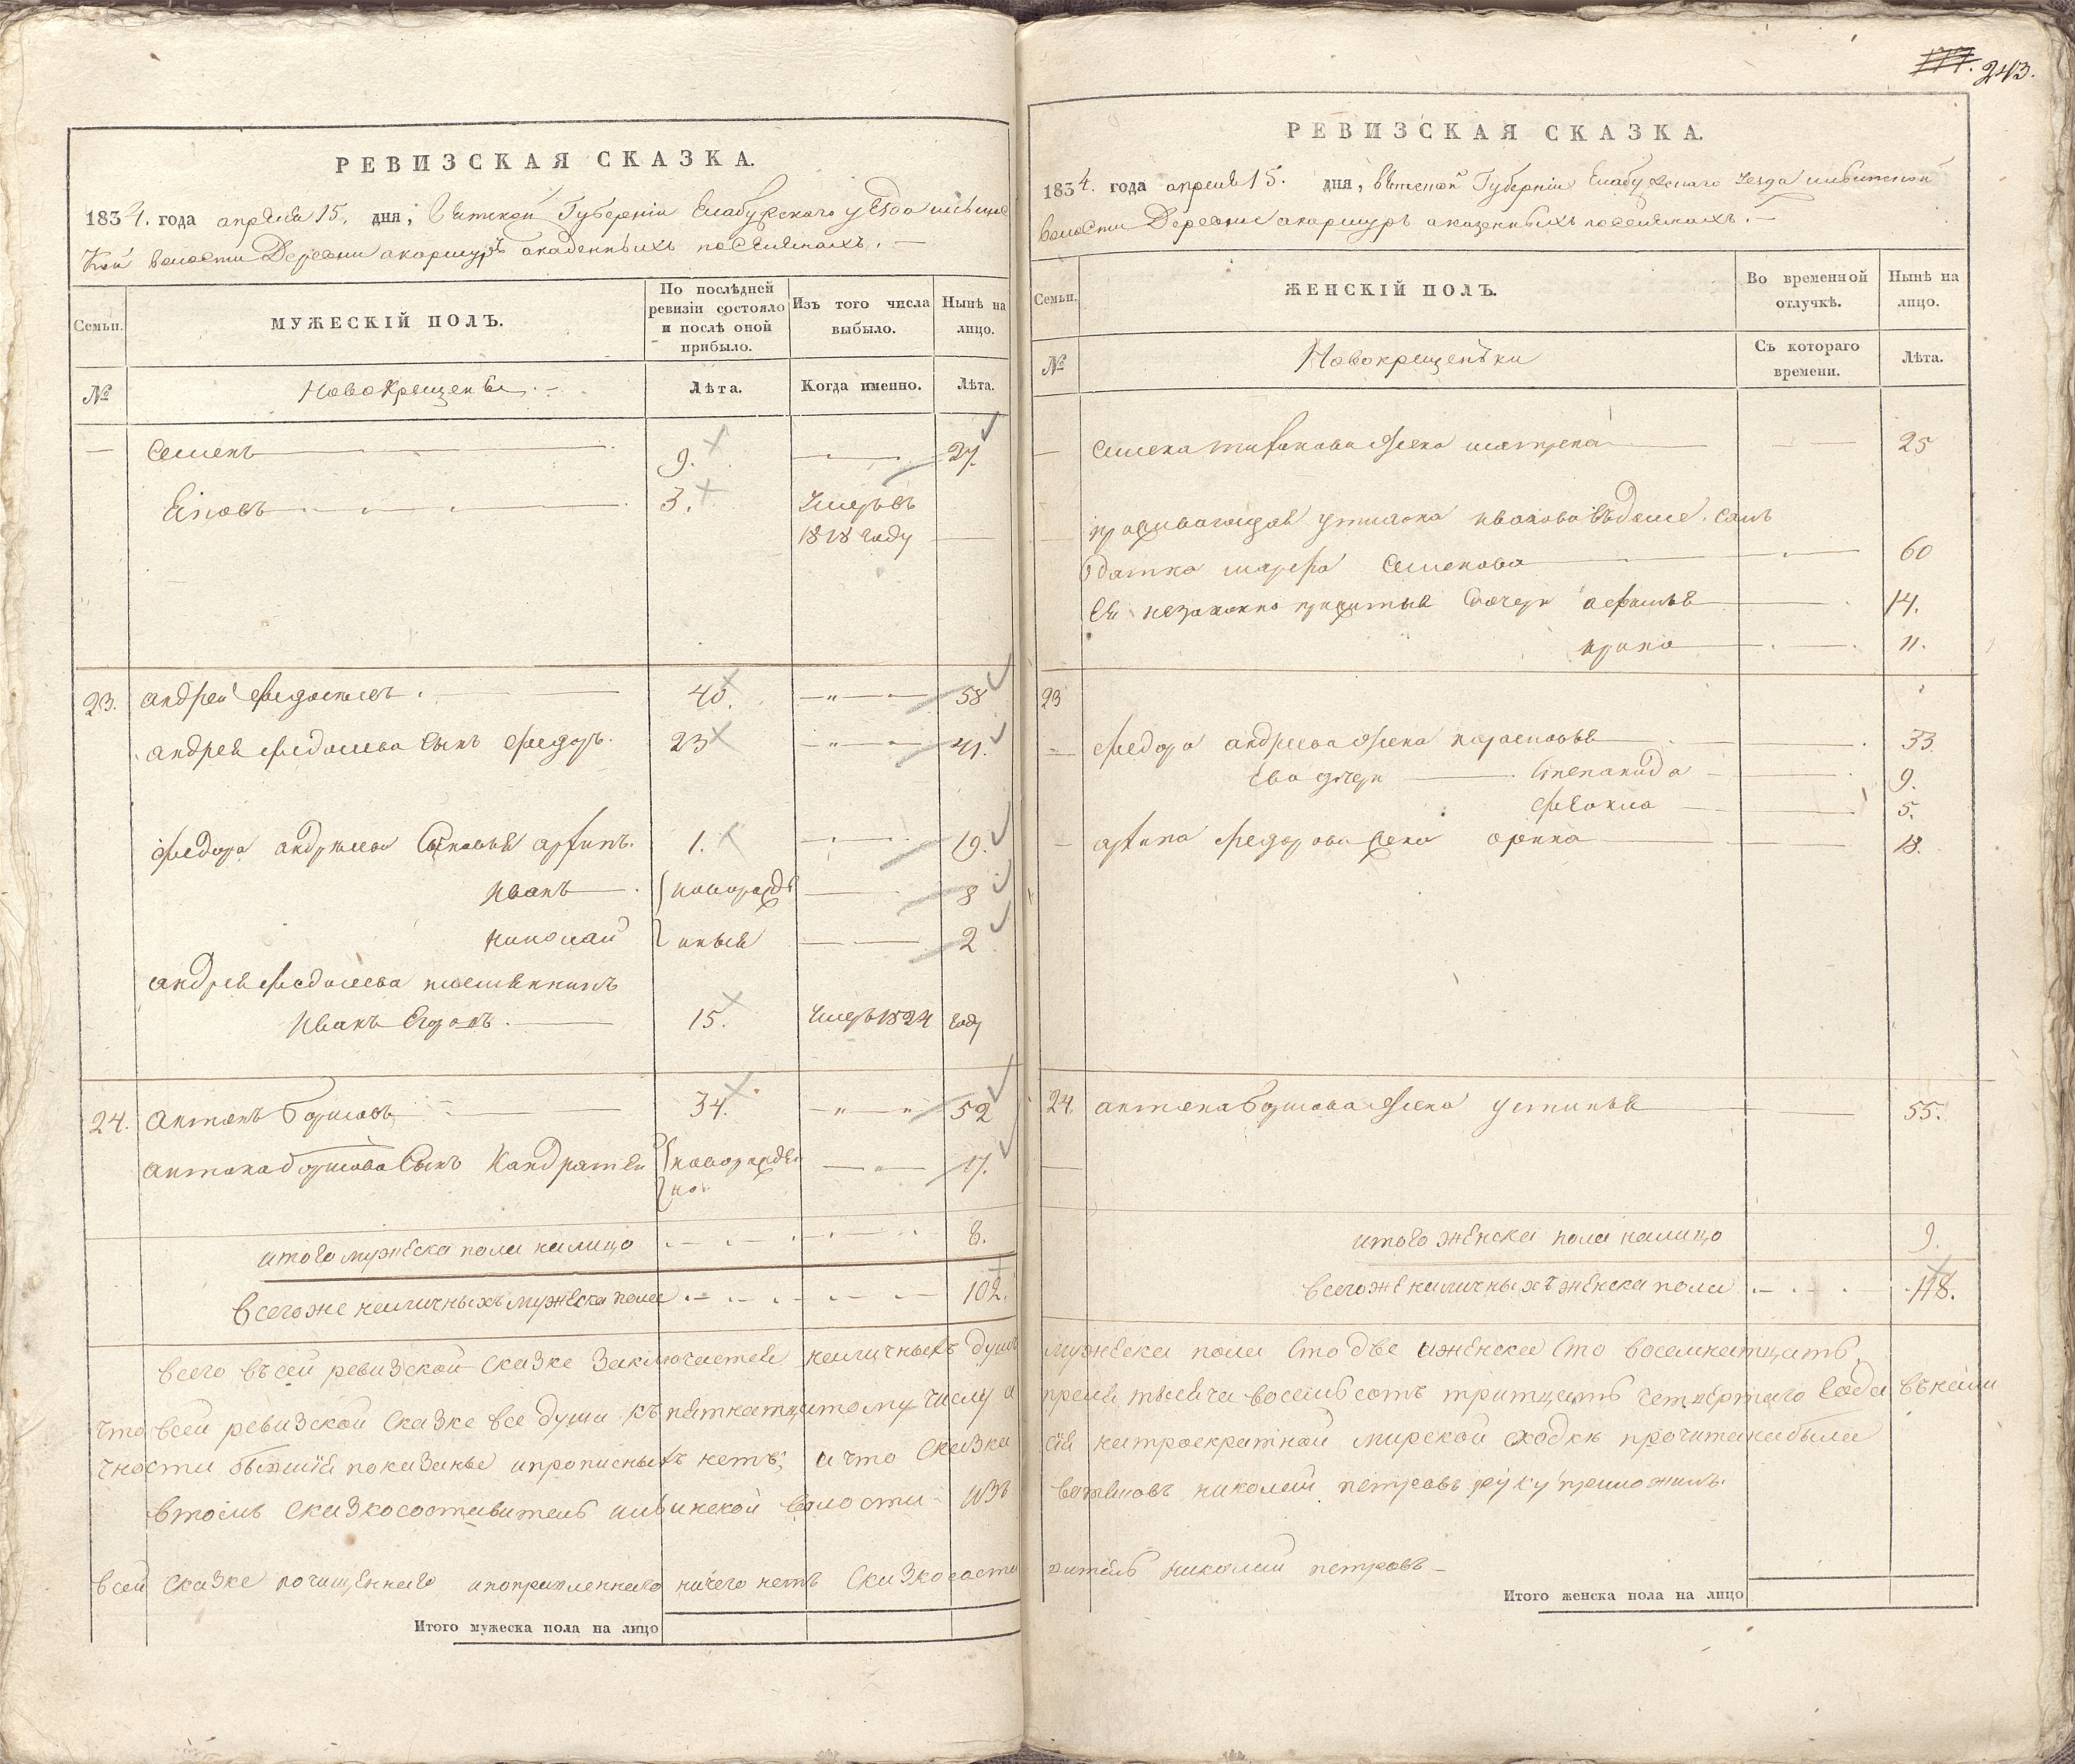 РЕВИЗСКАЯ СКАЗКА.
1834. года апреля 15. дня, Вятской Губерніи Елабужского уезда ильинс
кой волости Деревни акаршуръ аказенныхъ поселянахъ.
Семьи.
МУЖЕСКІЙ ПОЛЪ.
По послѣдней ревизіи состояло и послѣ оной прибыло.
Изъ того числа выбыло.
Нынѣ на лицо.
№
Новокрещены
Лѣта.
Когда именно.
Лѣта.
Семенъ 9. 27.
3. Умеръ въ
1818 году
23. андрей 40. 58
андрея сынъ федоръ 23 41.
федора андреева сыновья 1. 19.
иванъ новорожд 8
николай нныя 2
андрея племянникъ
иванъ 15. умеръ 1824 году
24. антонъ борисовъ 34. 52
антона борисова сынъ Кандратей новорожден 17.
но
итого мужеска пола налицо 8.
всегоже наличныхъ мужеска пола 102.
всего въсей ревизской сказке заключается наличныхъ душъ
что всей ревизской сказке все души къ пятнатцатому числу а
чности бывшїя показаны ипрописныхъ нетъ; ачто сказка
втомъ сказкосоставитель ильинской волости изъ
всей сказке почищеннаго ипоправленнаго ничего нетъ сказкососта
Итого мужеска пола на лицо
243.
РЕВИЗСКАЯ СКАЗКА.
1834. года апреля 15. дня, вятской Губерніи Елабужскаго уезда ильинской
волости Деревни акаршуръ аказенныхъ поселянахъ.
Семьи.
ЖЕНСКІЙ ПОЛЪ.
Во временной отлучкѣ.
Нынѣ на лицо.
№
Новокрещенъки
Съ котораго времени.
Лѣта.
Семена жена матрена 25
иванова въдоме. сол
датка марфа семенова 60
ея незаконно прижитыя дочери 14.
ирина 11.
23
федора андреева жена 33.
ево дочери степанида 9.
фекла 5.
федорова жена арина 18.
24. антона борисова жена устинья 55.
итого женска пола налицо 9.
всегоже наличныхъ женска пола 118.
мужеска пола сто две иженска сто восемнатцать,
преля тысяча восемьсотъ тритцать четвертаго года въкали
сїя натроекратной мирской сходке прочитана была
вотяковъ николай петровъ руку приложилъ.
витель николай петровъ
Итого женска пола на лицо